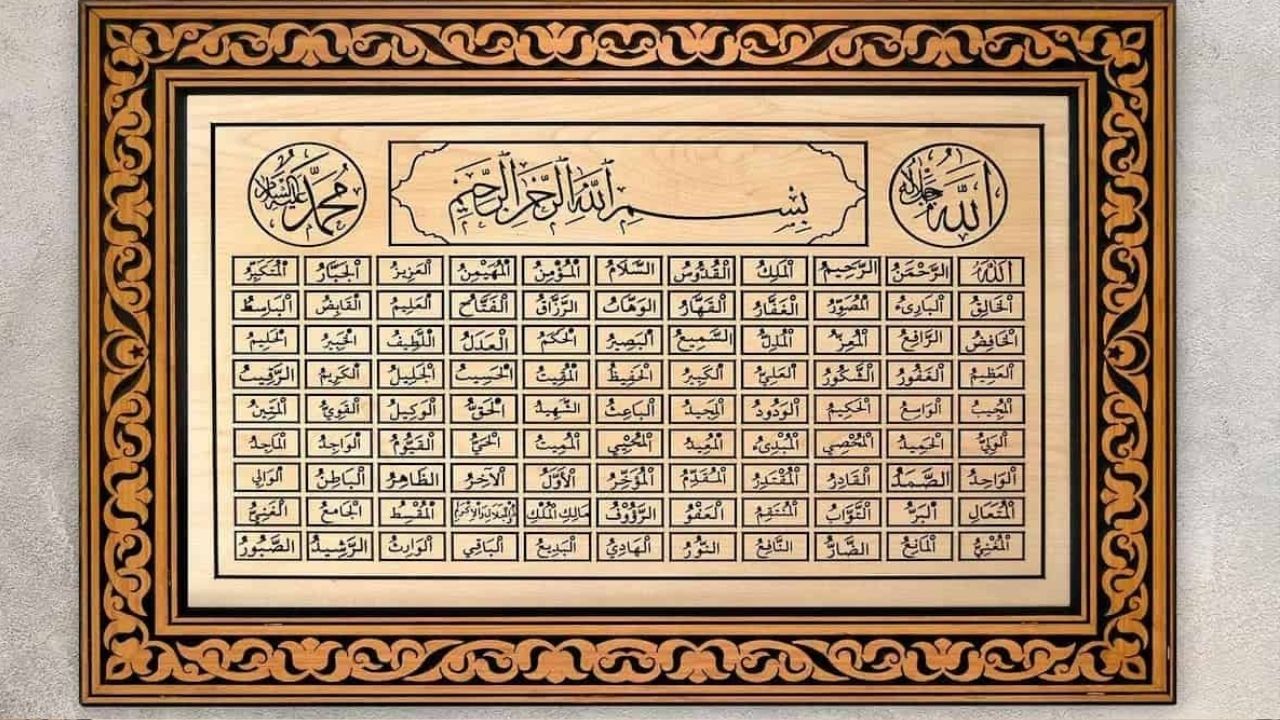 الله جل جلاله
بِسْمِ اللهِ الرَّحْمٰنِ الرَّحِيمِ
محمد عليه السلام
اللهُ الرَّحْمٰنُ الرَّحِيمُ الْمَلِكُ الْقُدُّوسُ السَّلَامُ الْمُؤْمِنُ الْمُهَيْمِنُ الْعَزِيزُ الْجَبَّارُ الْمُتَكَبِّرُ
الْخَالِقُ الْبَارِىءُ الْمُصَوِّرُ الْغَفَّارُ الْقَهَّارُ الْوَهَّابُ الرَّزَّاقُ الْفَتَّاحُ الْعَلِيمُ الْقَابِضُ الْبَاسِطُ
الْخَافِضُ الرَّافِعُ الْمُعِزُّ الْمُذِلُّ السَّمِيعُ الْبَصِيرُ الْحَكَمُ الْعَدْلُ اللَّطِيفُ الْخَبِيرُ الْحَلِيمُ
الْعَظِيمُ الْغَفُورُ الشَّكُورُ الْعَلِيُّ الْكَبِيرُ الْحَفِيظُ الْمُقِيتُ الْحَسِيبُ الْجَلِيلُ الْكَرِيمُ الرَّقِيبُ
الْمُجِيبُ الْوَاسِعُ الْحَكِيمُ الْوَدُودُ الْمَجِيدُ الْبَاعِثُ الشَّهِيدُ الْحَقُّ الْوَكِيلُ الْقَوِيُّ الْمَتِينُ
الْوَلِيُّ الْحَمِيدُ الْمُحْصِي الْمُبْدِىءُ الْمُعِيدُ الْمُحْيِي الْمُمِيتُ الْحَيُّ الْقَيُّومُ الْوَاجِدُ الْمَاجِدُ
الْوَاحِدُ الصَّمَدُ الْقَادِرُ الْمُقْتَدِرُ الْمُقَدِّمُ الْمُؤَخِّرُ الْأَوَّلُ الْآخِرُ الظَّاهِرُ الْبَاطِنُ الْوَالِي
الْمُتَعَالِ الْبَرُّ التَّوَّابُ الْمُنْتَقِمُ الْعَفُوُّ الرَّؤُوفُ مَالِكُ الْمُلْكِ ذُو الْجَلَالِ وَالْإِكْرَامِ الْمُقْسِطُ الْجَامِعُ الْغَنِيُّ
الْمُغْنِيُّ الْمَانِعُ الضَّارُّ النَّافِعُ النُّورُ الْهَادِي الْبَدِيعُ الْبَاقِي الْوَارِثُ الرَّشِيدُ الصَّبُورُ